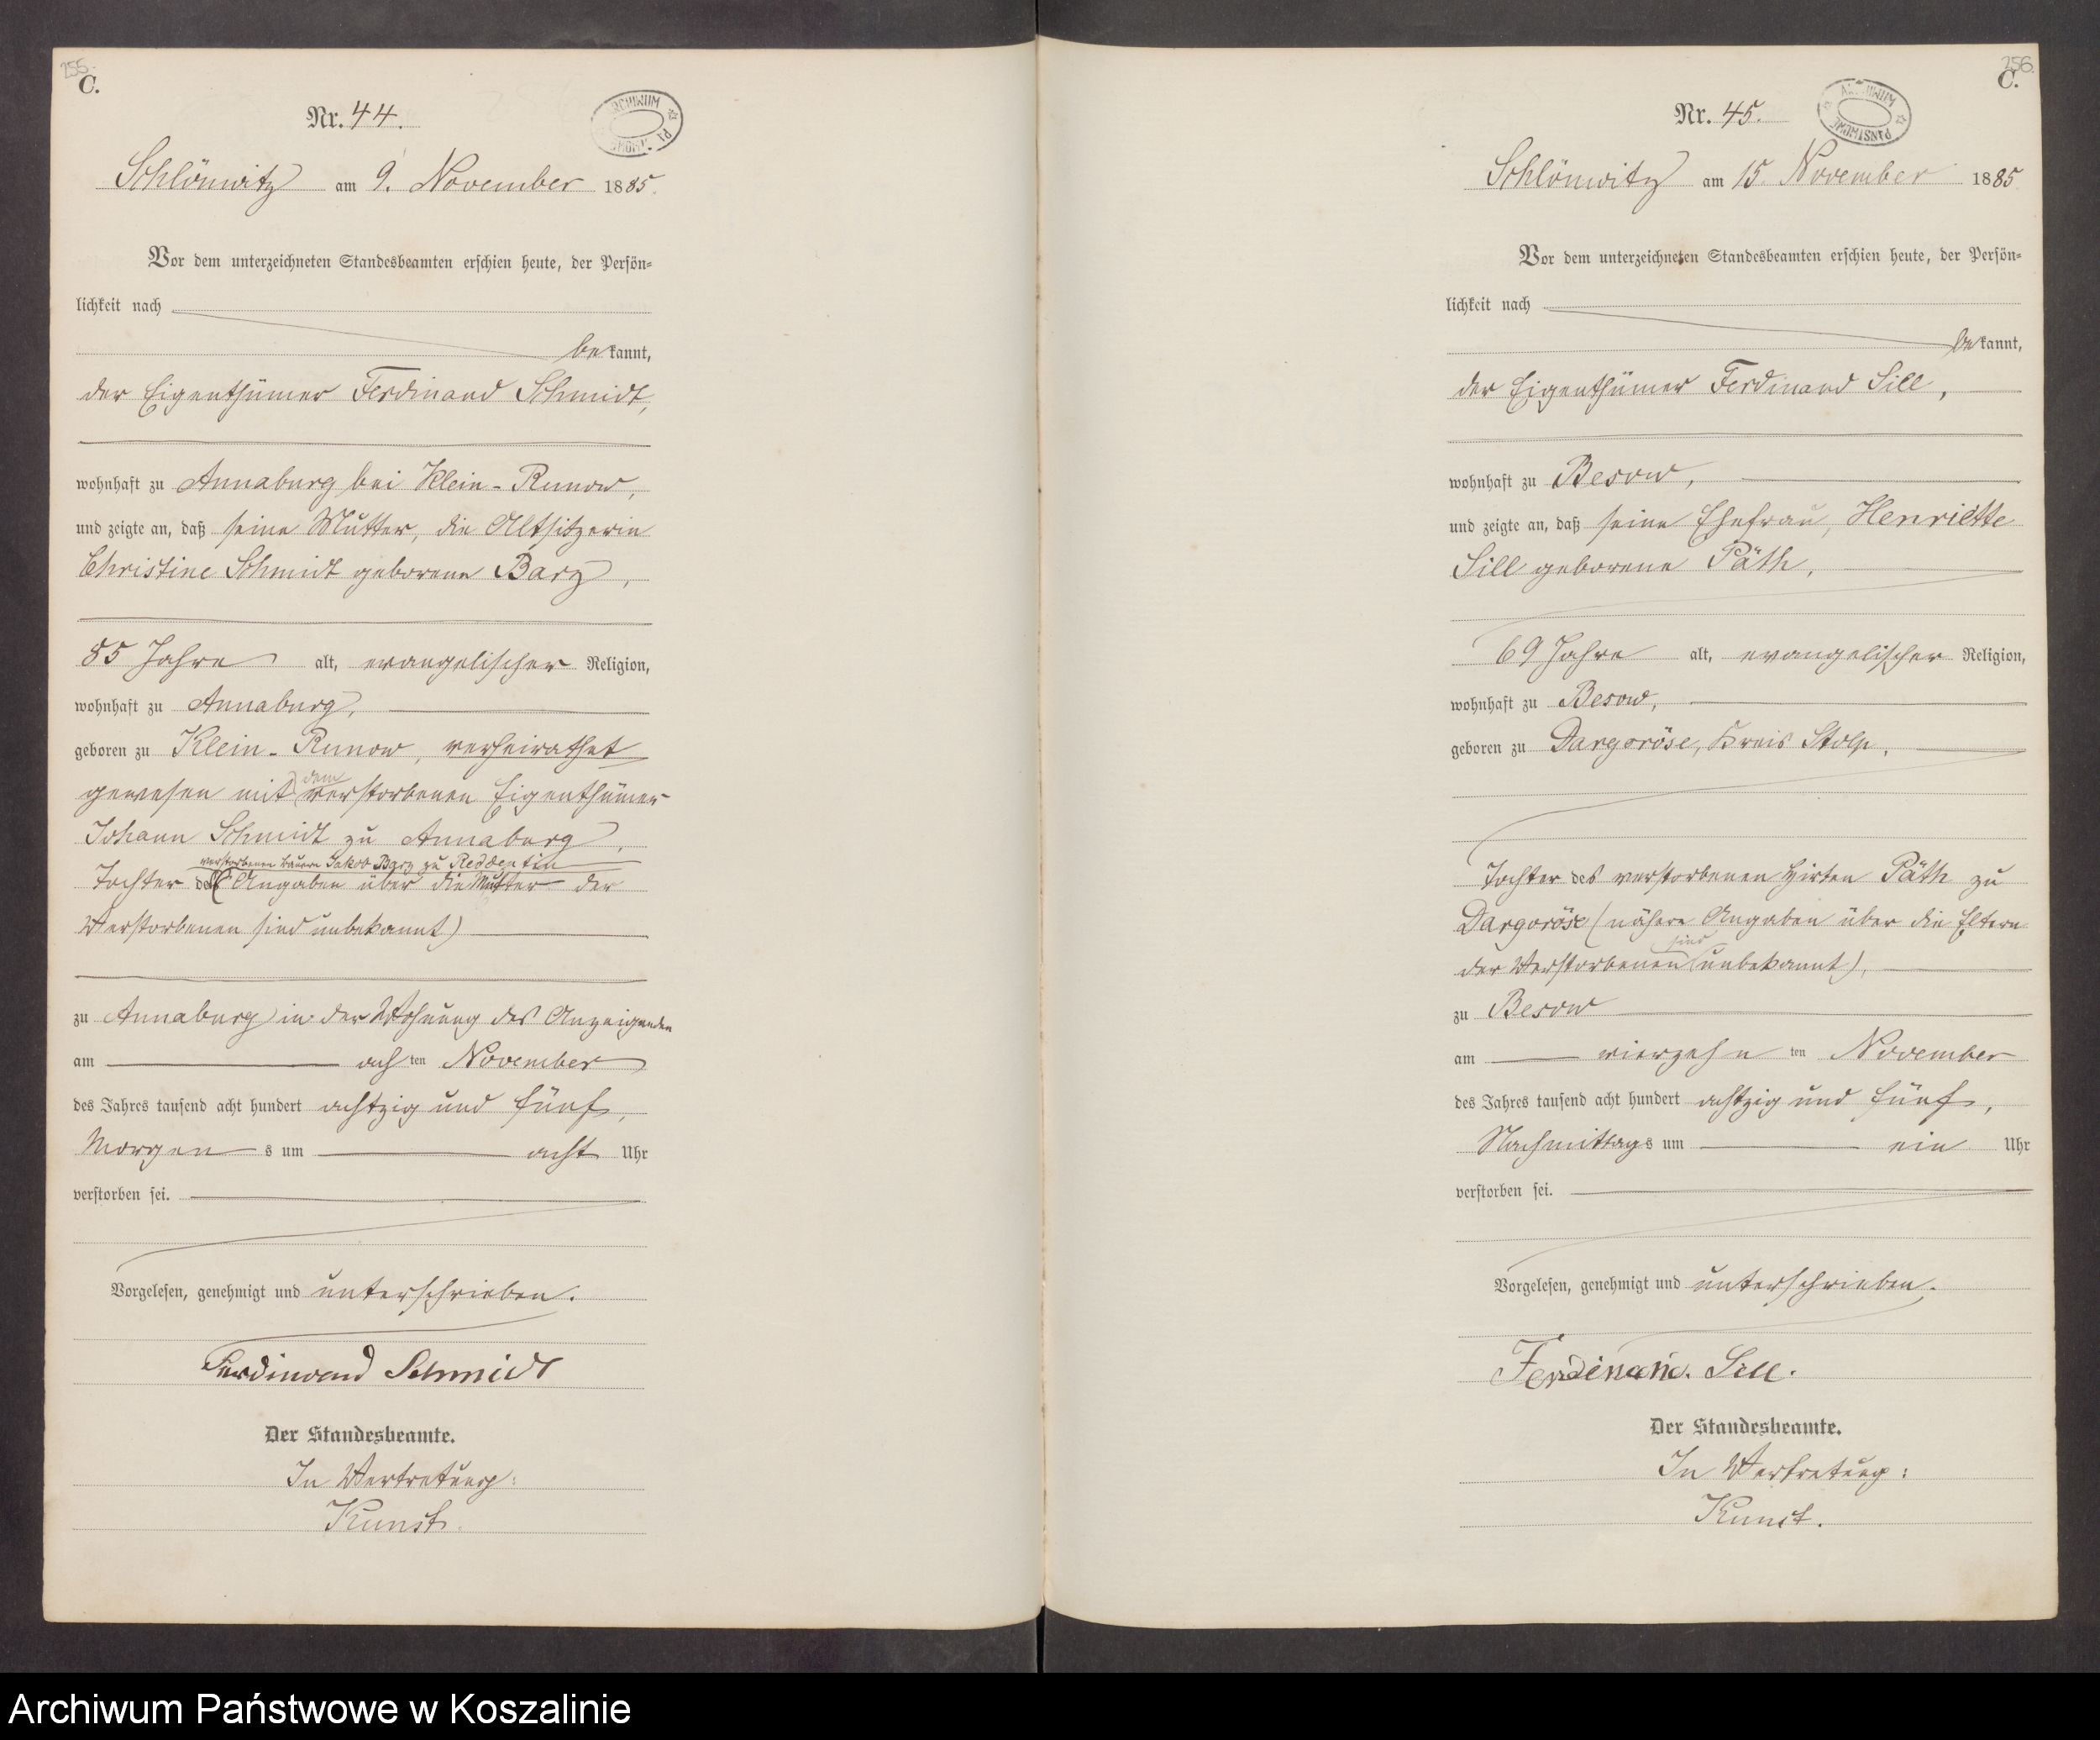 255.
C.
Nr. 44.
ARCHIWUM
Schlönwitz am 9. November 1885.
Vor dem unterzeichneten Standesbeamten erschien heute, der Persön-
lichkeit nach
bekannt,
der Eigenthümer Ferdinand Schmidt,
wohnhaft zu Annaburg bei Klein-Runow,
und zeigte an, daß seine Mutter, die Altsitzerin
Christine Schmidt geborene Barz,
85 Jahre alt, evangelischer Religion,
wohnhaft zu Annaburg,
geboren zu Klein-Runow, verheirathet
gewesen mit dem verstorbenen Eigenthümer
Johann Schmidt zu Annaburg,
verstorbenen Bauern Jakob Barz zu Reddentin
Tochter des (Angaben über die Mutter der
Verstorbenen sind unbekannt)
zu Annaburg in der Wohnung des Anzeigenden
am achten November
des Jahres tausend acht hundert achtzig und fünf,
Morgens um acht Uhr
verstorben sei.
Vorgelesen, genehmigt und unterschrieben.
Ferdinand Schmidt
Der Standesbeamte.
In Vertretung:
Kunst.
256.
C.
Nr. 45.
ARCHIWUM PAŃSTWOWE
Schlönwitz am 15. November 1885
Vor dem unterzeichneten Standesbeamten erschien heute, der Persön-
lichkeit nach
bekannt,
der Eigenthümer Ferdinand Sill,
wohnhaft zu Besow,
und zeigte an, daß seine Ehefrau, Henriette
Sill geborene Päth,
69 Jahre alt, evangelischer Religion,
wohnhaft zu Besow,
geboren zu Dargoröse, Kreis Stolp,
Tochter des verstorbenen Hirten Päth zu
Dargoröse (nähere Angaben über die Eltern
der Verstorbenen sind unbekannt),
zu Besow
am vierzehnten November
des Jahres tausend acht hundert achtzig und fünf,
Nachmittags um ein Uhr
verstorben sei.
Vorgelesen, genehmigt und unterschrieben.
Ferdinand. Sill.
Der Standesbeamte.
In Vertretung:
Kunst.
Archiwum Państwowe w Koszalinie